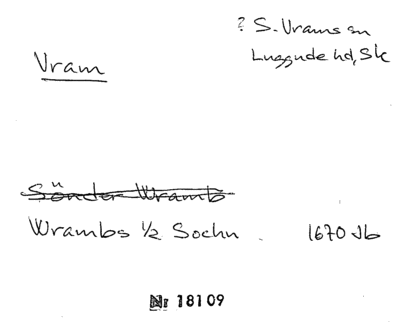 ? S. Vrams sn
Luggude hd, Sk
Vram
Sönder Wramb
Wrambs 1/2 Sochn . 1670 Jb
Nr 18109